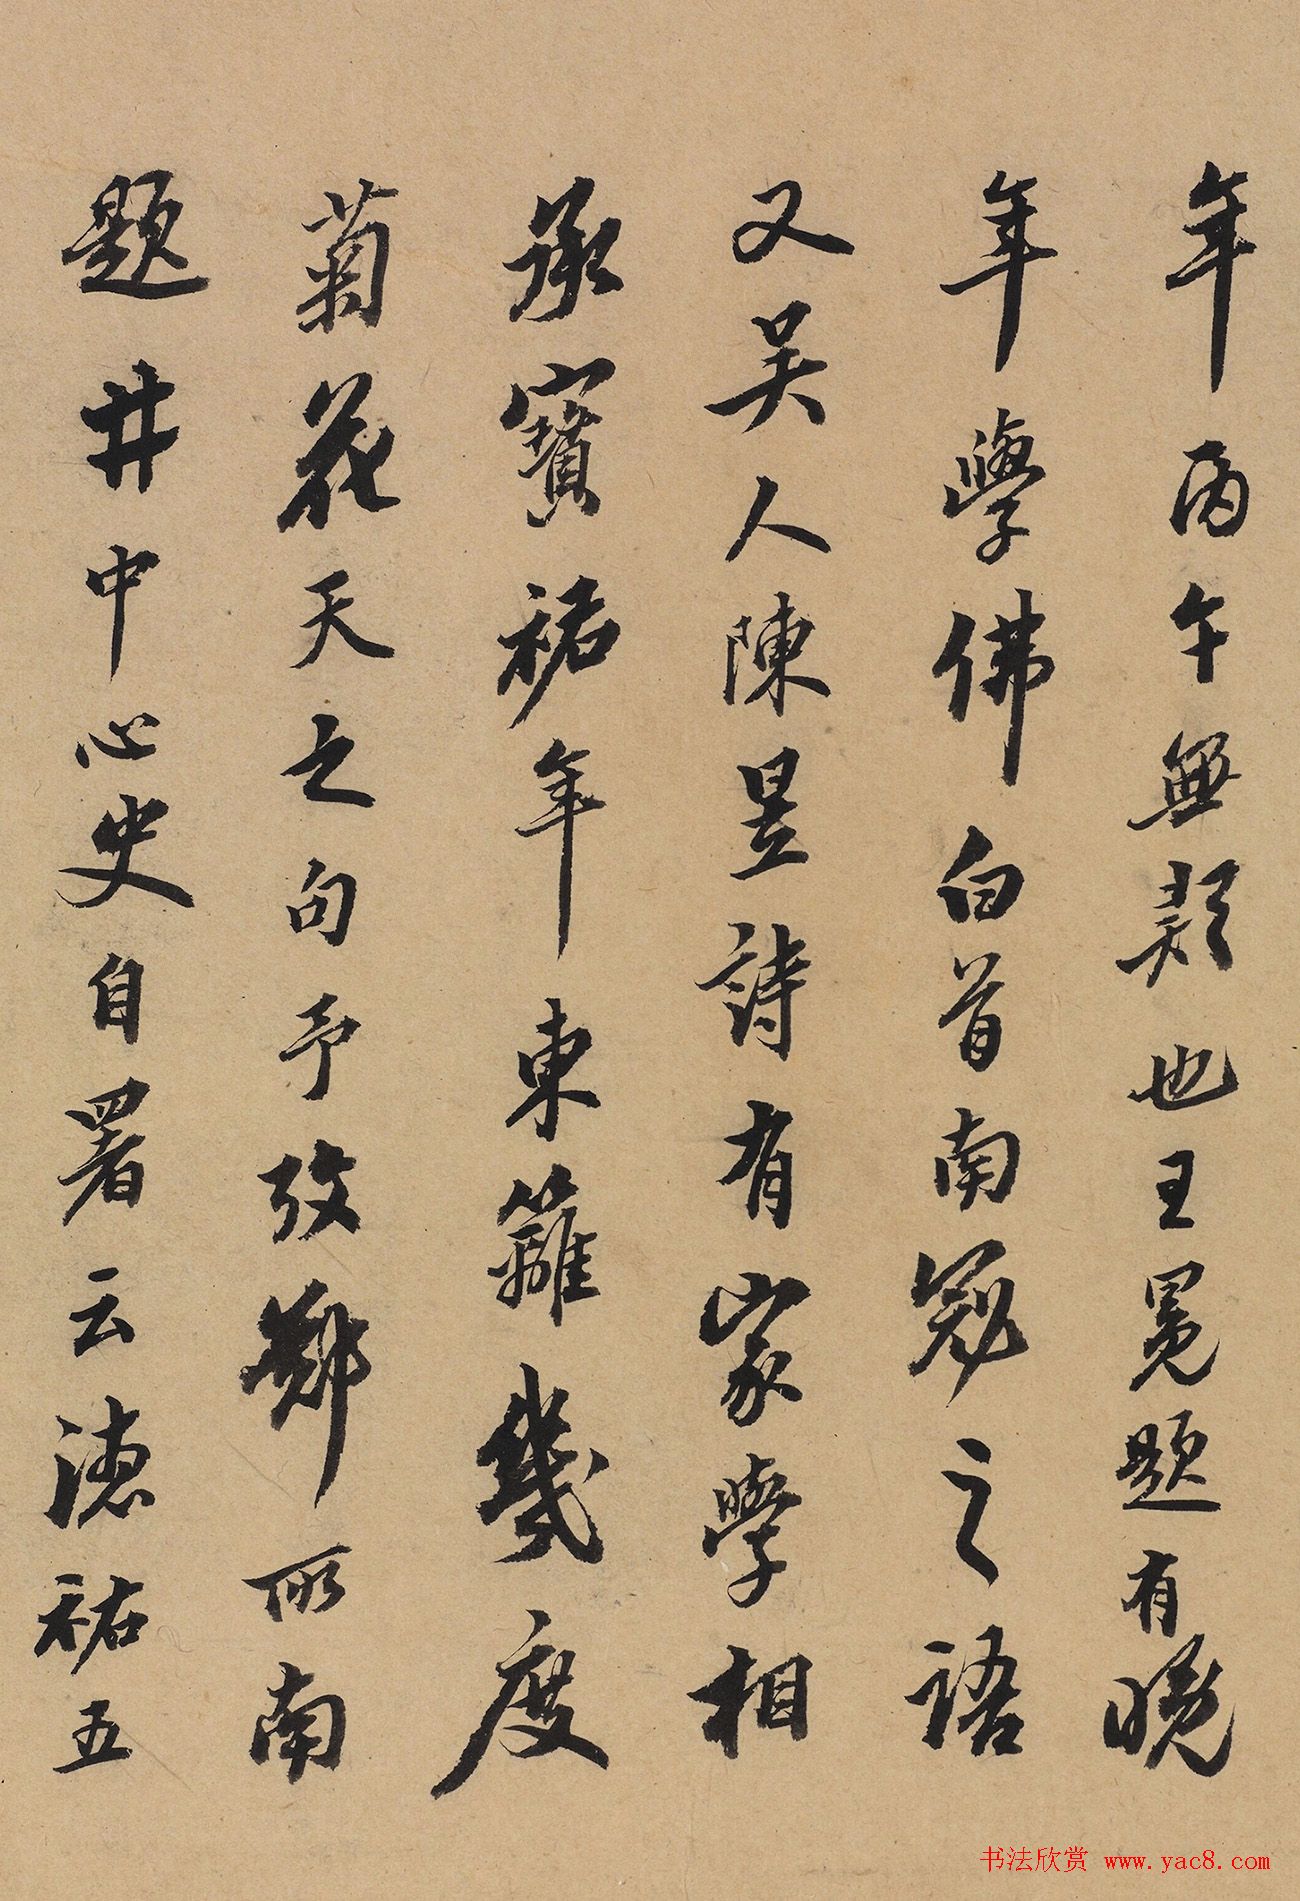 年丙午無疑也王冕題有晚
年學佛白首南冠之語
又吳人陳昱詩有家學相
承寶祐年東籬幾度
菊花天之句予攷鄭所南
題井中心史自署云德祐五
书法欣赏 www.yac8.com